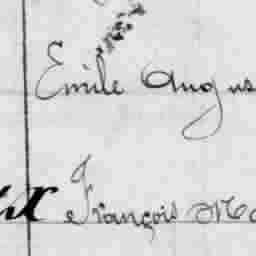 Emile Augus
François